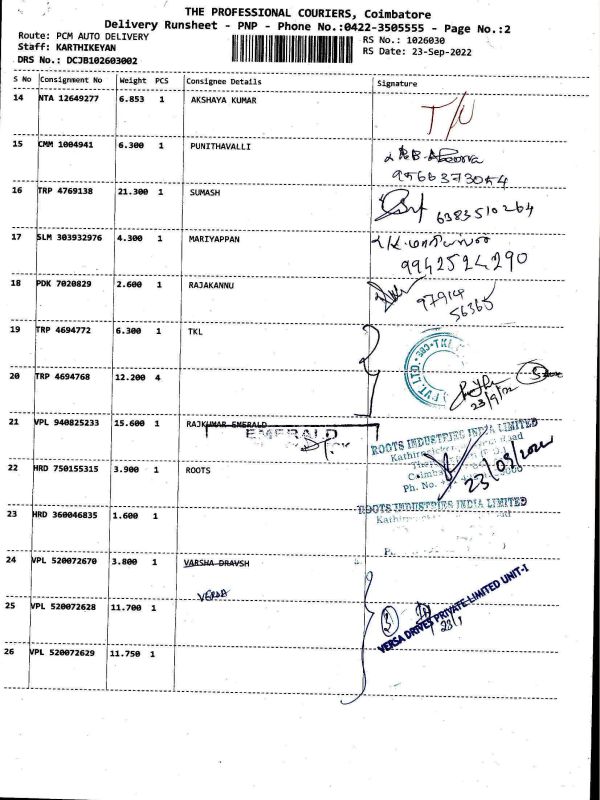 THE PROFESSIONAL COURIERS, Coimbatore
Delivery Runsheet - PNP - Phone No.:0422-3505555 - Page No.:2
Route: PCM AUTO DELIVERY
RS No.: 1026030
Staff: KARTHIKEYAN
RS Date: 23-Sep-2022
DRS No.: DCJB102603002
S No Consignment No Weight PCS Consignee Details Signature
14 NTA 12649277 6.853 1 AKSHAYA KUMAR
15 CMM 1004941 6.300 1 PUNITHAVALLI
9566373054
16 TRP 4769138 21.300 1 SUMASH
6383510264
17 SLM 303932976 4.300 1 MARIYAPPAN
9942524290
18 PDK 7020829 2.600 1 RAJAKANNU
97914
56365
19 TRP 4694772 6.300 1 TKL
20 TRP 4694768 12.200 4
23/9/22
21 VPL 940825233 15.600 1 RAJKUMAR EMERALD
EMERALD
ROOTS INDUSTRIES INDIA LIMITED
22 HRD 750155315 3.900 1 ROOTS
Ph. No.
23/09/2022
ROOTS INDUSTRIES INDIA LIMITED
23 HRD 360046835 1.600 1
24 VPL 520072670 3.800 1 VARSHA DRAVSH
VERSA
25 VPL 520072628 11.700 1
VERSA DRIVES PRIVATE LIMITED UNIT-I
26 VPL 520072629 11.750 1